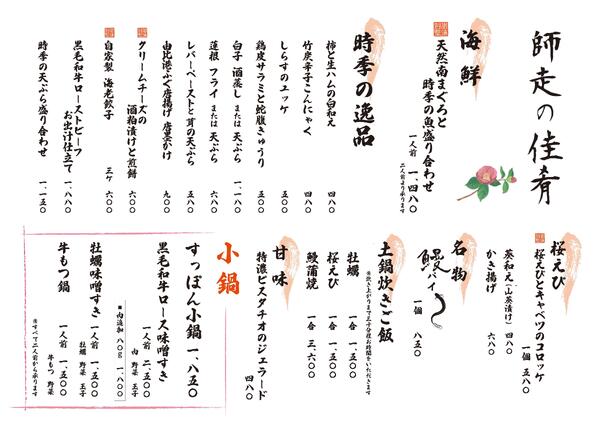 師走の佳肴
海鮮
天然南まぐろと
時季の魚盛り合わせ
一人前 一、四八〇
二人前より承ります
時季の逸品
柿と生ハムの白和え 四八〇
竹炭辛子こんにゃく 四八〇
しらすのユッケ 五〇〇
鶏皮サラミと蛇腹きゅうり 五〇〇
白子 酒蒸し または 天ぷら 一、一八〇
蓮根 フライ または 天ぷら 六〇〇
レバーペーストと茸の天ぷら 五八〇
由比港ふぐ唐揚げ 唐墨かけ 九〇〇
クリームチーズの
酒粕漬けと煎餅 六〇〇
自家製 海老餃子 三ケ 六〇〇
黒毛和牛ローストビーフ
お出汁仕立て 一、一八〇
時季の天ぷら盛り合わせ 一、一五〇
桜えび
桜えびとキャベツのコロッケ
一個 五八〇
英和え（山葵漬け） 四八〇
かき揚げ 六八〇
名物
鰻パイ 一個 八五〇
土鍋炊きご飯
※炊き上がりまで三十分程お時間をいただきます
牡蠣 一合 一、五〇〇
桜えび 一合 一、五〇〇
鰻蒲焼 一合 三、六〇〇
甘味
特濃ピスタチオのジェラード
四八〇
小鍋
すっぽん小鍋 一、八五〇
黒毛和牛ロース味噌すき
一人前 二、五〇〇
肉 野菜 玉子
■肉追加 八〇g 一、八〇〇
牡蠣味噌すき 一人前 一、五〇〇
牡蠣 野菜 玉子
牛もつ鍋 一人前 一、五〇〇
牛もつ 野菜
※すべて二人前から承ります